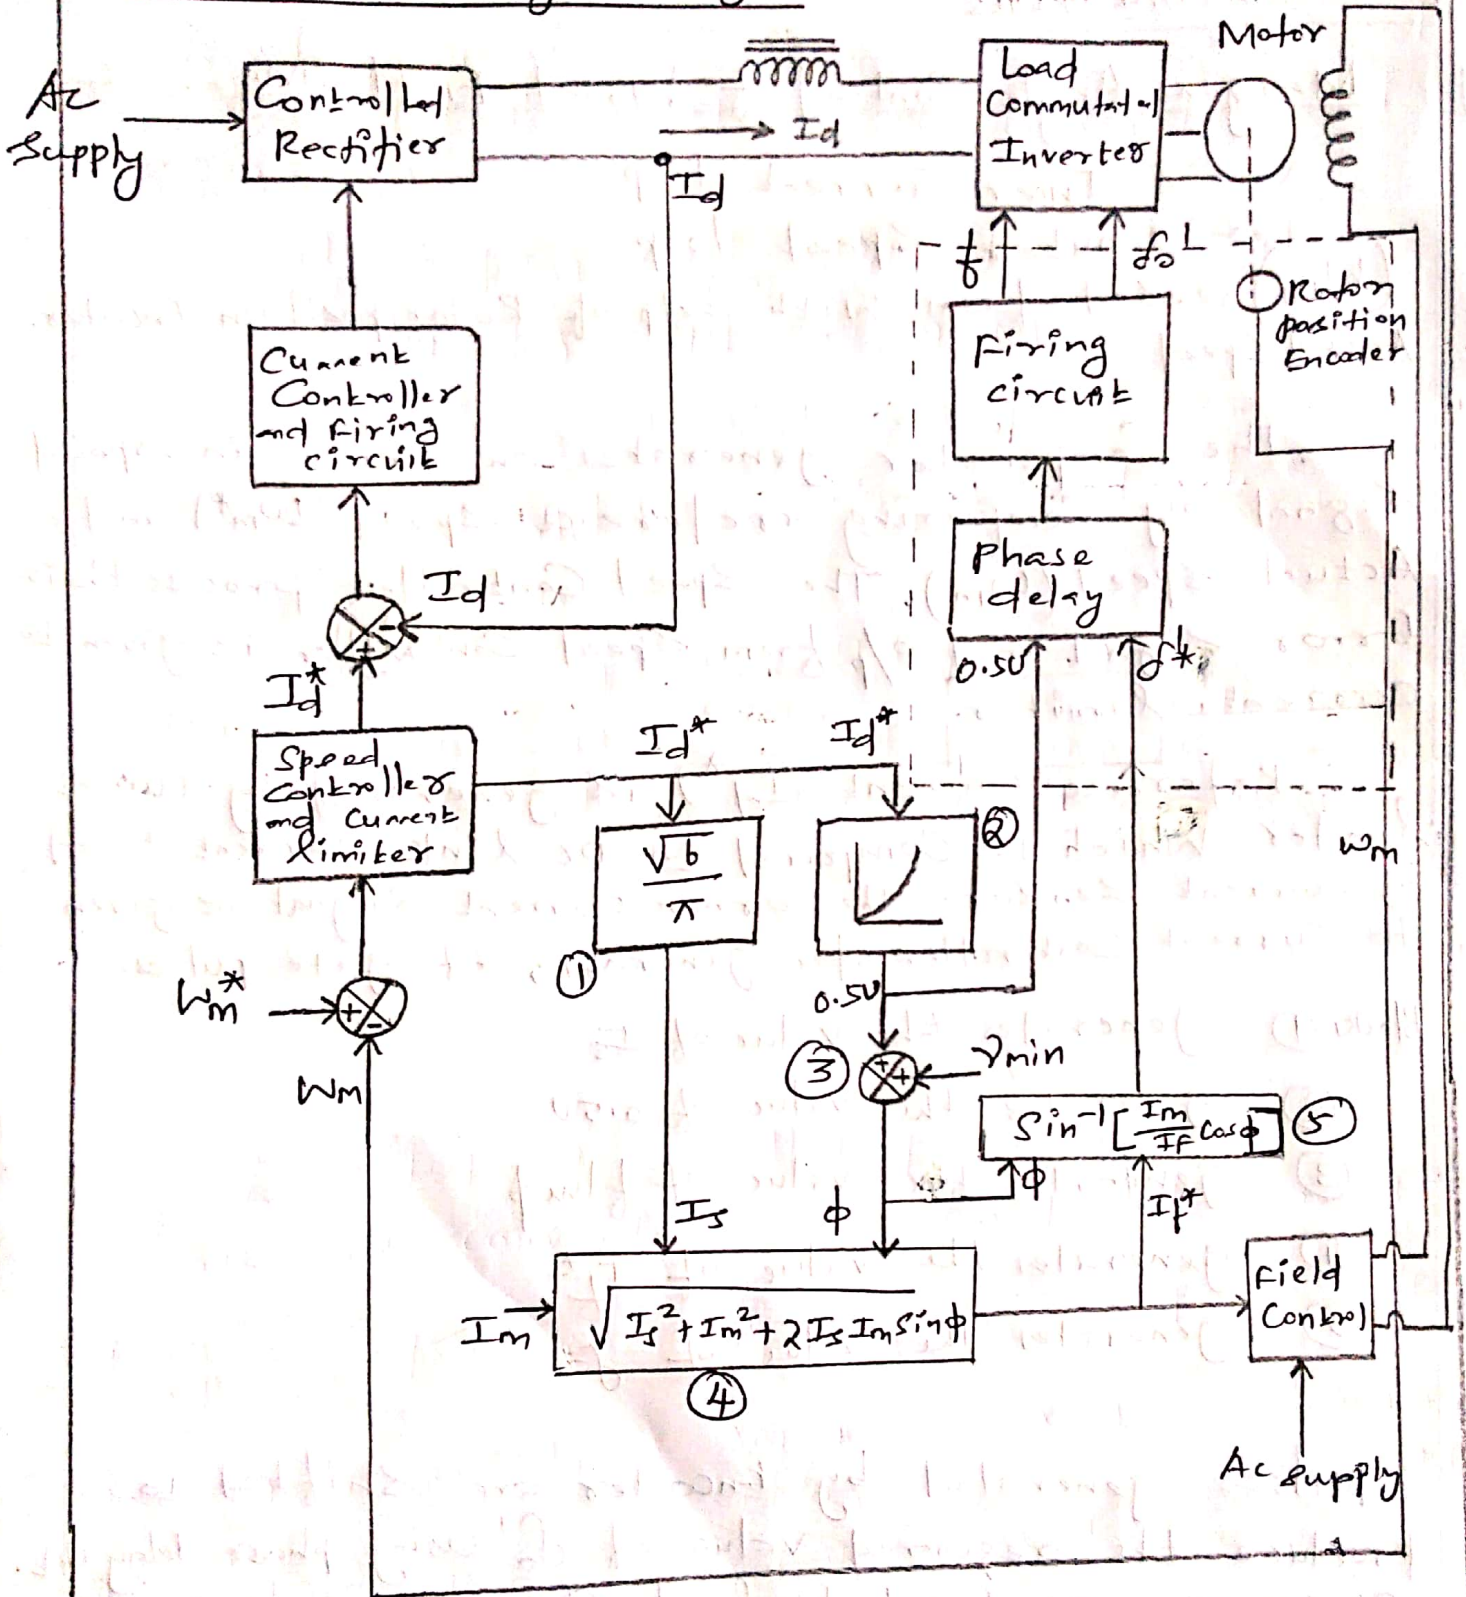 Motor
Ac
Supply
Controlled
Rectifier
Id
Load
Commutated
Inverter
Id
f
Rotor
position
Encoder
Current
Controller
and firing
circuit
Firing
circuit
Phase
delay
Id
0.5U
δ'*
Id*
Id*
Id*
Speed
Controller
and Current
limiter
√6
π
②
ωm
①
ωm*
0.5U
③
γmin
ωm
Sin⁻¹ [Im/If Cosφ]
⑤
φ
Is
φ
If*
Im
√Is²+Im²+2IsImSinφ
④
Field
Control
Ac Supply